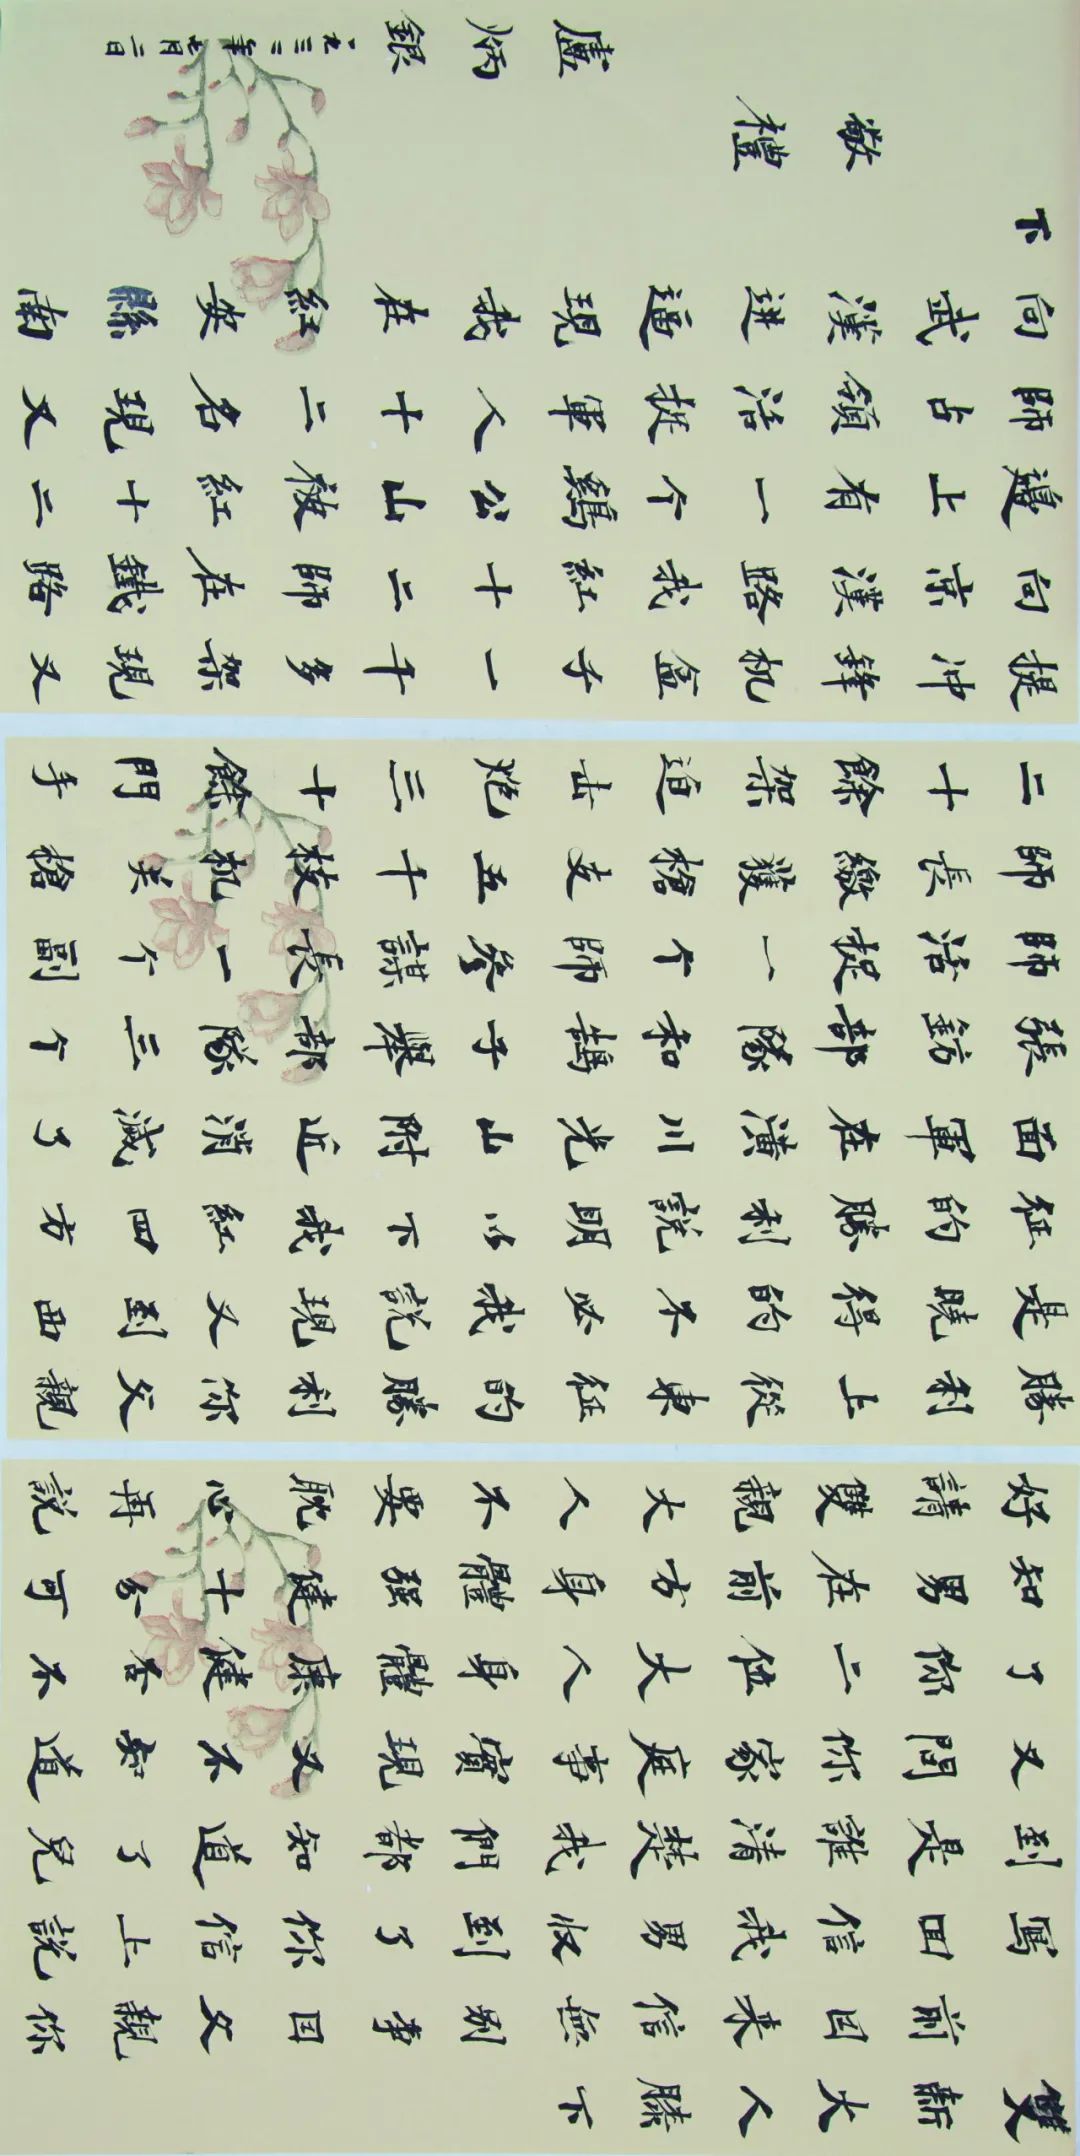 雙親大人膝下
前因來信無別事因父親你
寫回信我男收到了你信上說
到是誰清楚我們都知道了兒
又問你家庭事實現又不知道
了你二位大人身體康健否不
知男在前方身體強健十分可
好請雙親大人不要耽心再說
勝利上從東征的勝利你父親
是曉得的不必我說現又到西
征的勝利說明以下我紅四方
面軍在潢川光山附近消滅了
張鈁部隊和鵠子舉部隊三个
師活捉一个師參謀長一个副
師長繳獲槍支五千枝机关槍
二十餘架迫击炮三十餘門手
提冲鋒机盒子一千多架現又
向京漢路我紅十二師在鐵路
邊上有一个鷄公山被紅十二
師占領活捉軍人十二名現又
向武漢進逼現我在紅安縣南
下
敬禮
盧炳銀
一九三二年七月二日